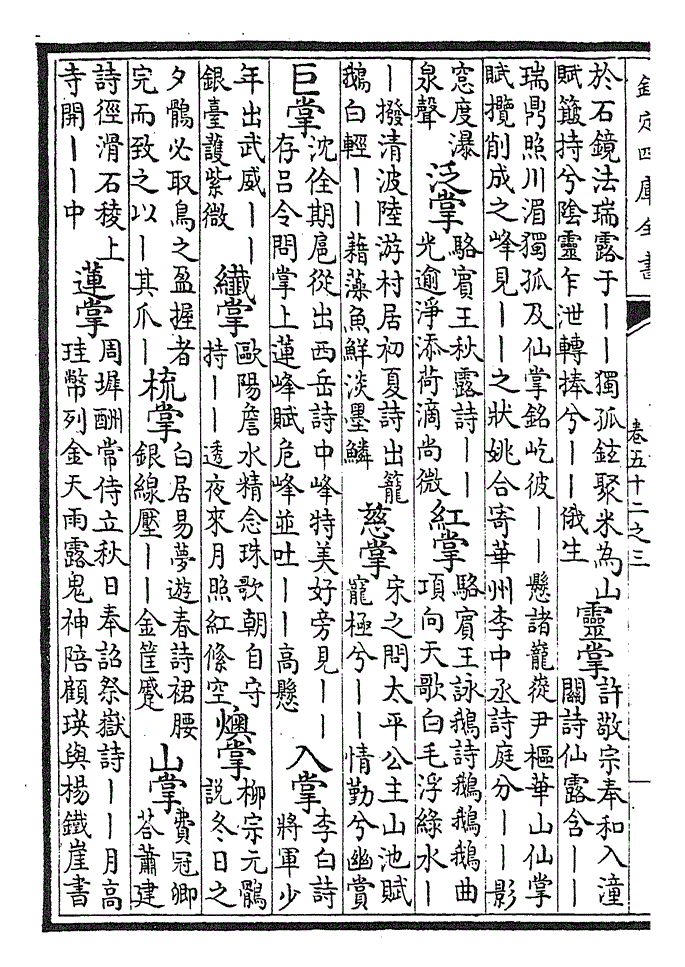 欽定四庫全書
卷五十二之三
於石鏡法瑞露于丨丨獨孤鉉聚米為山
賦簸持兮陰靈乍泄轉捧兮丨丨俄生
靈掌
許敬宗奉和入潼
關詩仙露含丨丨
瑞鼎照川湄獨孤及仙掌銘屹彼丨丨懸諸巃嵸尹樞華山仙掌
賦攬削成之峰見丨丨之狀姚合寄華州李中丞詩庭分丨丨影
窓度瀑
泉聲
泛掌
駱賓王秋露詩丨丨
光逾淨添荷滴尚微
紅掌
駱賓王詠鵝詩鵝鵝鵝曲
項向天歌白毛浮綠水丨
丨撥清波陸游村居初夏詩出籠
鵝白輕丨丨藉藻魚鮮淡墨鱗
慈掌
宋之問太平公主山池賦
寵極兮丨丨情勤兮幽賞
巨掌
沈佺期扈從出西岳詩中峰特美好旁見丨丨
存呂令問掌上蓮峰賦危峰並吐丨丨高懸
入掌
李白詩
將軍少
年出武威丨丨
銀臺護紫微
纖掌
歐陽詹水精念珠歌朝自守
持丨丨透夜來月照紅絛空
燠掌
柳宗元鶻
說冬日之
夕鶻必取鳥之盈握者
完而致之以丨其爪丨
梳掌
白居易夢遊春詩裙腰
銀線壓丨丨金筐蹙
山掌
費冠卿
荅蕭建
詩徑滑石稜上
寺開丨丨中
蓮掌
周墀酬常侍立秋日奉詔祭嶽詩丨丨月高
珪幣列金天雨露鬼神陪顧瑛與楊鐵崖書